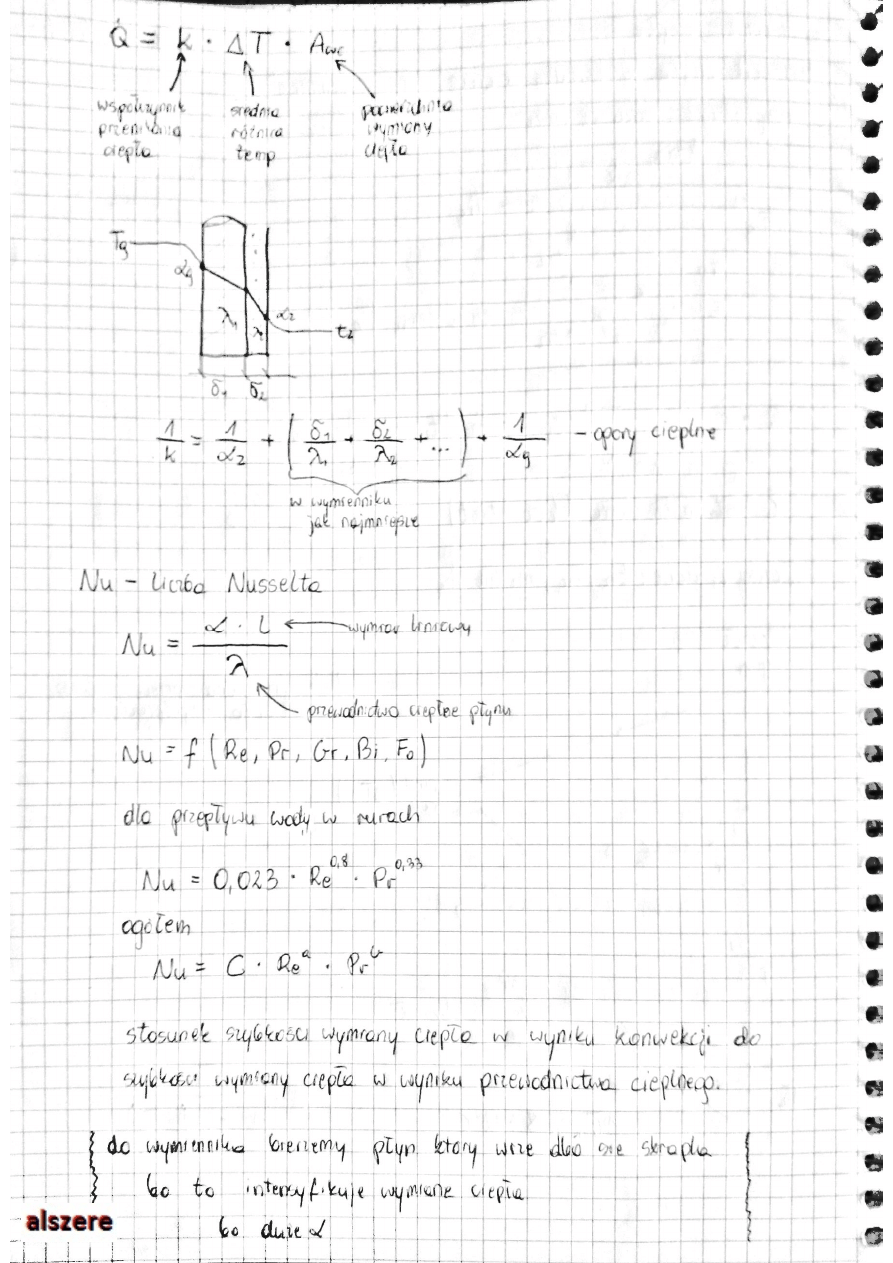 Q̇ = k · ΔT · Awc
współczynnik przenikania ciepła
średnia różnica temp
powierzchnia wymiany ciepła
Tg
αg
λ1
λ
α2
t2
δ1 δ2
1/k = 1/α2 + (δ1/λ1 + δ2/λ2 + ...) + 1/αg - opory cieplne
w wymienniku
jak najmniejsze
Nu - liczba Nusselta
Nu = α · L / λ
wymiar liniowy
przewodnictwo cieplne płynu
Nu = f (Re, Pr, Gr, Bi, Fo)
dla przepływu wody w rurach
Nu = 0,023 · Re^0,8 · Pr^0,33
ogółem
Nu = C · Re^a · Pr^b
stosunek szybkości wymiany ciepła w wyniku konwekcji do
szybkości wymiany ciepła w wyniku przewodnictwa cieplnego.
do wymiennika bierzemy płyn który wrze albo się skrapla
bo to intensyfikuje wymianę ciepła
bo duże α
alszere